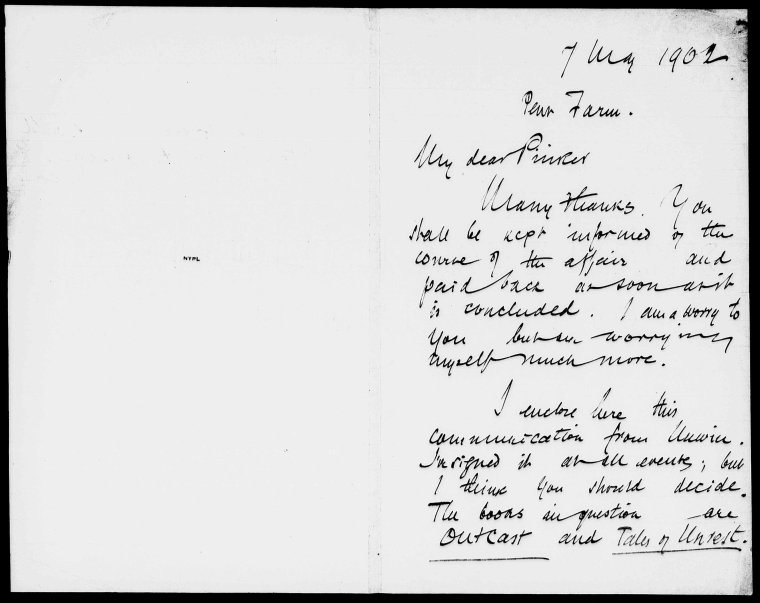 7 May 1902
Pent Farm.
My dear Pinker
Many thanks. You
shall be kept informed of the
course of the affair and
paid back as soon as it
is concluded. I am a worry to
you but am worrying
myself much more.
I enclose here this
communication from Unwin.
I signed it at all events; but
I think you should decide.
The books in question are
Outcast and Tales of Unrest.
NYPL